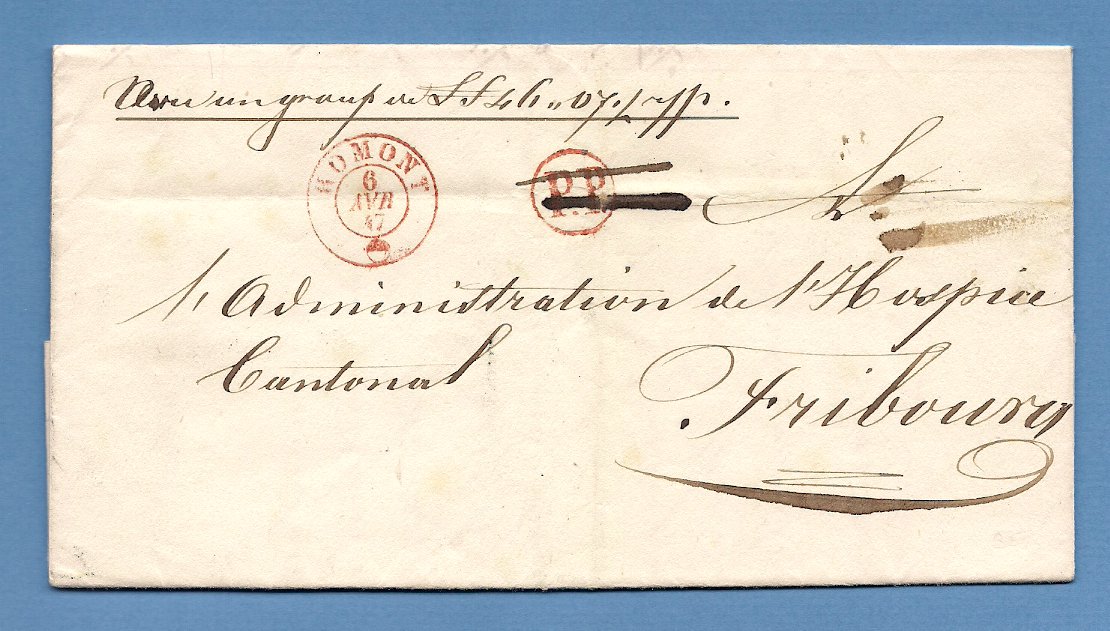 Avec un group de LS 46 „ 07.
ROMONT
6
AVR
47
P.P.
A
l'Administration de l'Hospice
Cantonal
Fribourg